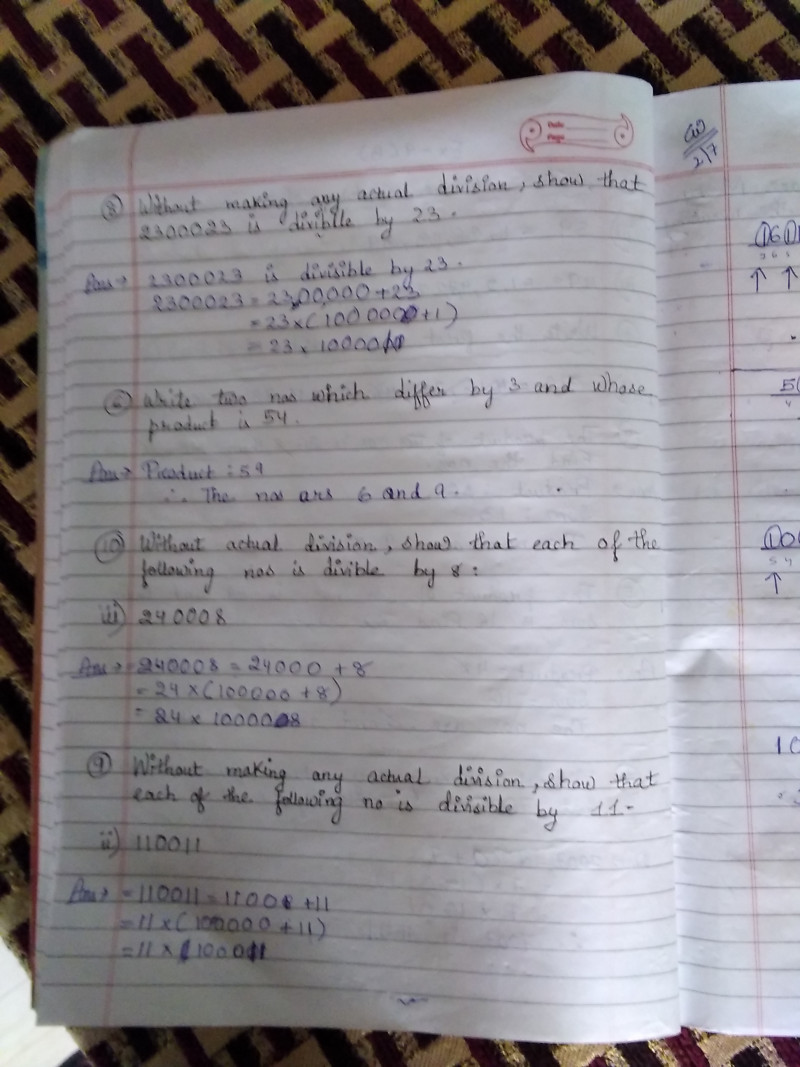 Date
Page
⑧ Without making any actual division, show that
2300023 is divible by 23.
Ans→ 2300023 is divisible by 23.
2300023 = 23,00,000 + 23
= 23 × (100000 + 1)
= 23 × 100001
⑥ Write two nos which differ by 3 and whose
product is 54.
Ans→ Product : 54
∴ The nos ars 6 and 9.
⑩ Without actual division, show that each of the
following nos is divible by 8:
iii) 240008
Ans→ 240008 = 24000 + 8
= 24 × (100000 + 8)
= 24 × 1000008
⑨ Without making any actual division, show that
each of the following no is divisible by 11.
ii) 110011
Ans→ = 110011 = 11000 + 11
= 11 × (100000 + 11)
= 11 × 100011
CW
2/7